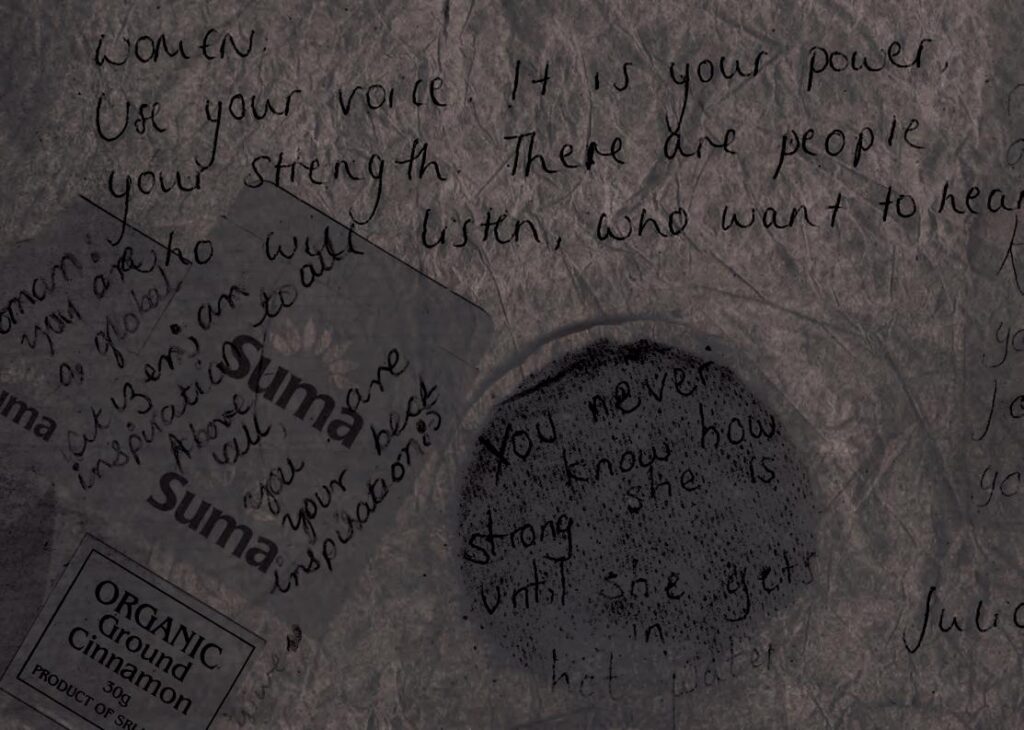 WOMEN.
Use your voice. It is your power,
your strength. There are people
who will listen, who want to hear
oman:
you are
a global
citizen; an
inspiration to all
Above
all,
you are
your best
inspirations
Suma
Suma
uma
ORGANIC
Ground
Cinnamon
30g
PRODUCT OF SRI
You never
know how
she is
strong
until she gets
in
hot water.
yo
yo
Julie